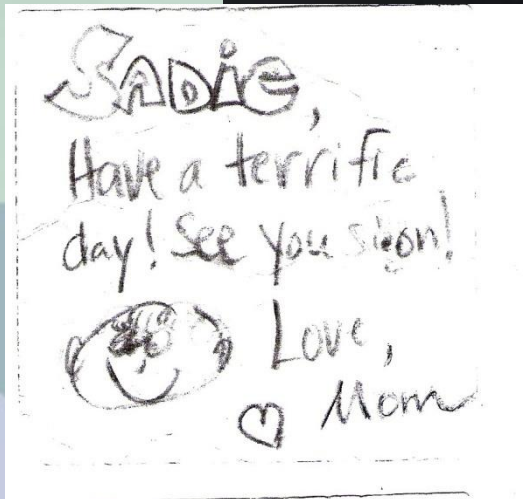 SADiE,
Have a terrific
day! See you soon!
Love,
Mom